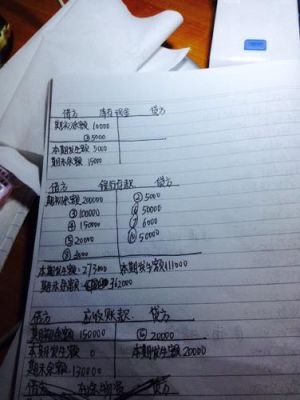 借方 库存现金 贷方
期初余额 10000
② 5000
本期发生额 5000
期末余额 15000
借方 银行存款 贷方
期初余额 200000 ② 5000
③ 100000 ⑥ 50000
④ 150000 ⑦ 6000
⑤ 20000 ⑩ 50000
本期发生额: 273000 本期发生额 111000
期末余额: 362000
借方 应收账款 贷方
期初余额 150000 20000
本期发生额 0 本期发生额 20000
期末余额 130000
借方 贷方